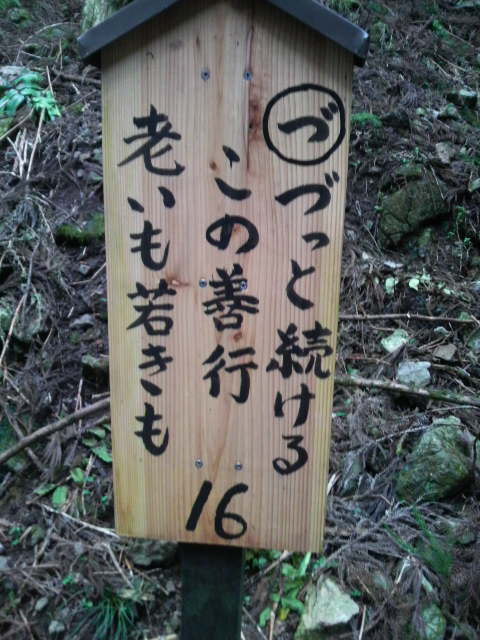 づ
づっと続ける
この善行
老いも若きも
16